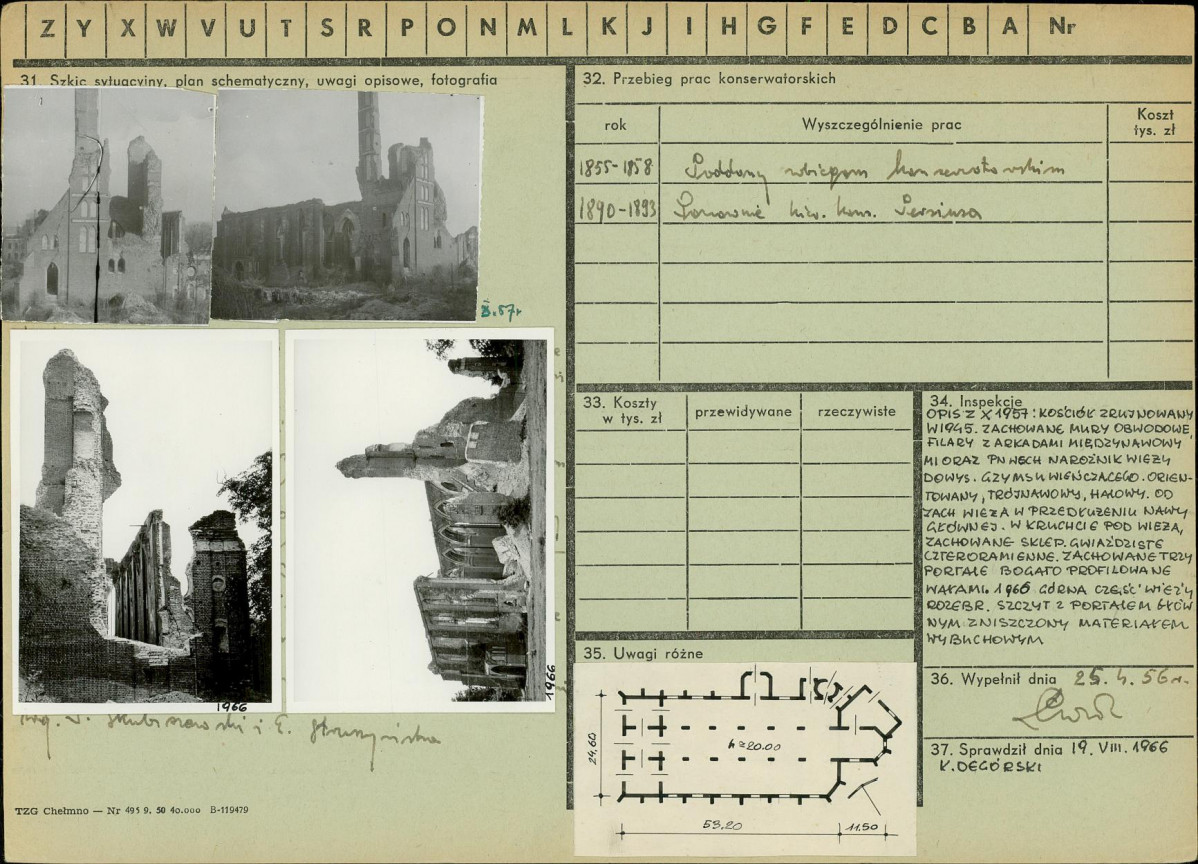 Z Y X W V U T S R P O N M L K J I H G F E D C B A Nr
31. Szkic sytuacyjny, plan schematyczny, uwagi opisowe, fotografia
X.57r
1966
1966
mgr
i E.
TZG Chełmno — Nr 495 9. 50 40.000 B-119479
32. Przebieg prac konserwatorskich
rok Wyszczególnienie prac Koszt
tys. zł
1855-1858 Poddany zabiegom konserwatorskim
1890-1893 Ponownie kier. kons. Persiusa
33. Koszty
w tys. zł przewidywane rzeczywiste
34. Inspekcje
OPIS Z X 1957: KOŚCIÓŁ ZRUJNOWANY
W 1945. ZACHOWANE MURY OBWODOWE,
FILARY Z ARKADAMI MIĘDZYNAWOWY
MI ORAZ PN WSCH NAROŻNIK WIEŻY
DO WYS. GZYMSU WIEŃCZĄCEGO. ORIEN-
TOWANY, TRÓJNAWOWY, HALOWY. OD
ZACH WIEŻA W PRZEDŁUŻENIU NAWY
GŁÓWNEJ. W KRUCHCIE POD WIEŻĄ,
ZACHOWANE SKLEP. GWIAŹDZISTE
CZTERORAMIENNE. ZACHOWANE TRZY
PORTALE BOGATO PROFILOWANE
WAŁKAMI. 1966 GÓRNA CZĘŚĆ WIEŻY
ROZEBR. SZCZYT Z PORTALEM GŁÓW
NYM ZNISZCZONY MATERIAŁEM
WYBUCHOWYM
35. Uwagi różne
24,60
h≈20.00
53,20
11,50
36. Wypełnił dnia 25. 4. 56 r.
37. Sprawdził dnia 19. VIII. 1966
K. DEGÓRSKI